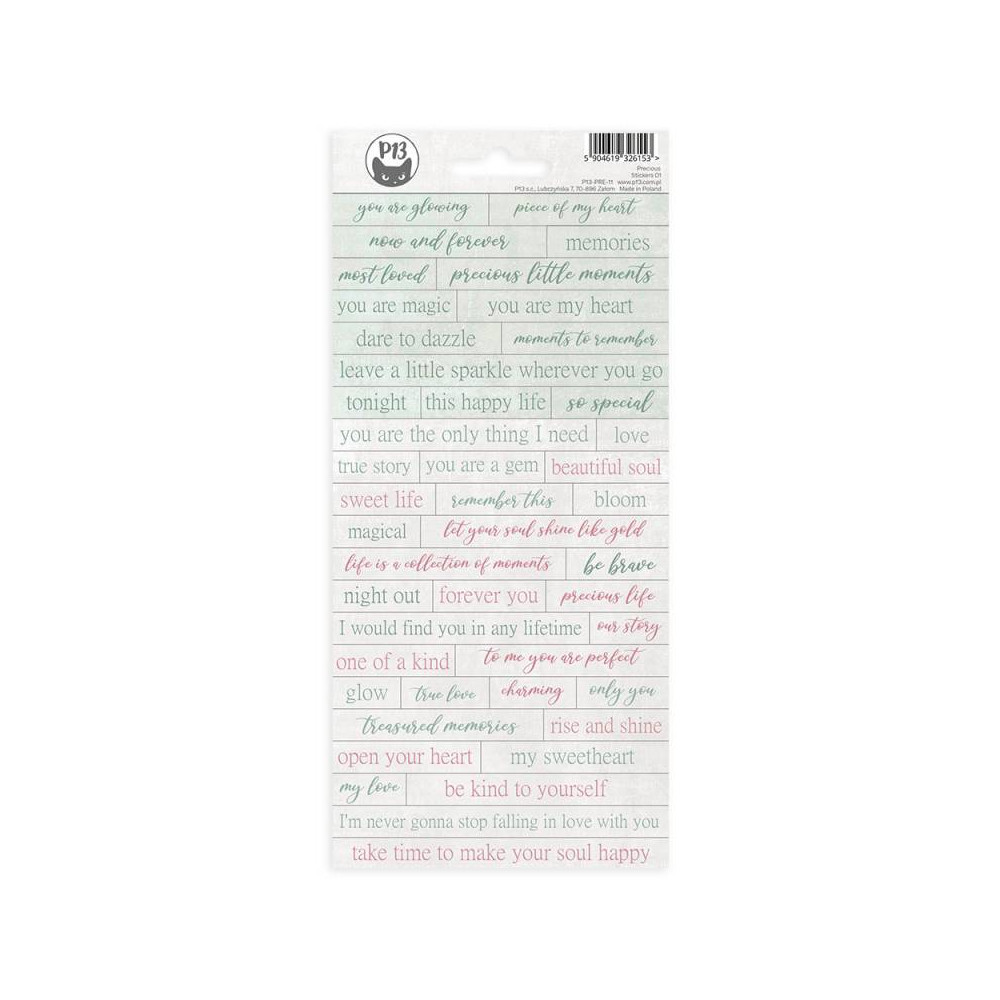 P13
5 904619 326153 >
Precious
Stickers 01
P13-PRE-11 www.p13.com.pl
P13 s.c., Lubczyńska 7, 70-896 Załom Made in Poland
you are glowing piece of my heart
now and forever memories
most loved precious little moments
you are magic you are my heart
dare to dazzle moments to remember
leave a little sparkle wherever you go
tonight this happy life so special
you are the only thing I need love
true story you are a gem beautiful soul
sweet life remember this bloom
magical let your soul shine like gold
life is a collection of moments be brave
night out forever you precious life
I would find you in any lifetime our story
one of a kind to me you are perfect
glow true love charming only you
treasured memories rise and shine
open your heart my sweetheart
my love be kind to yourself
I'm never gonna stop falling in love with you
take time to make your soul happy